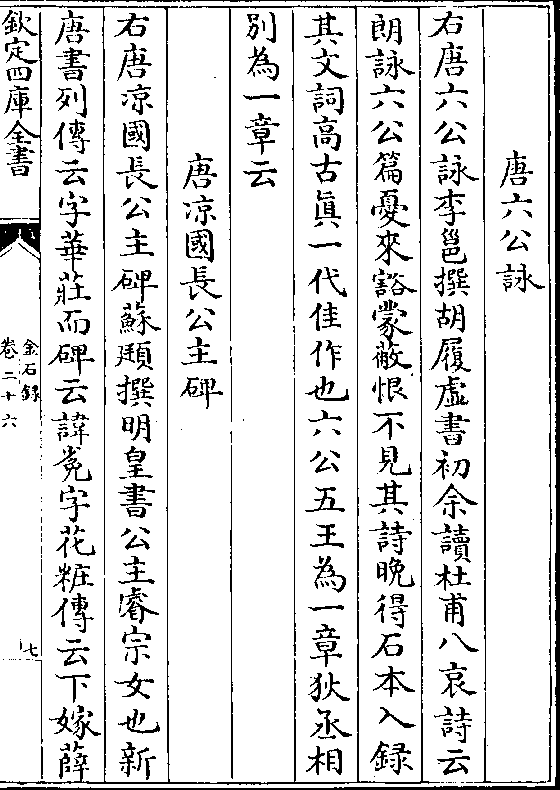 唐六公詠
右唐六公詠李邕撰胡履虛書初余讀杜甫八哀詩云
朗詠六公篇憂來豁蒙蔽恨不見其詩晚得石本入錄
其文詞高古真一代佳作也六公五王為一章狄丞相
別為一章云
唐凉國長公主碑
右唐凉國長公主碑蘇頲撰明皇書公主睿宗女也新
唐書列傳云字華莊而碑云諱㝹字花粧傳云下嫁薛
欽定四庫全書
金石錄
卷二十六
七